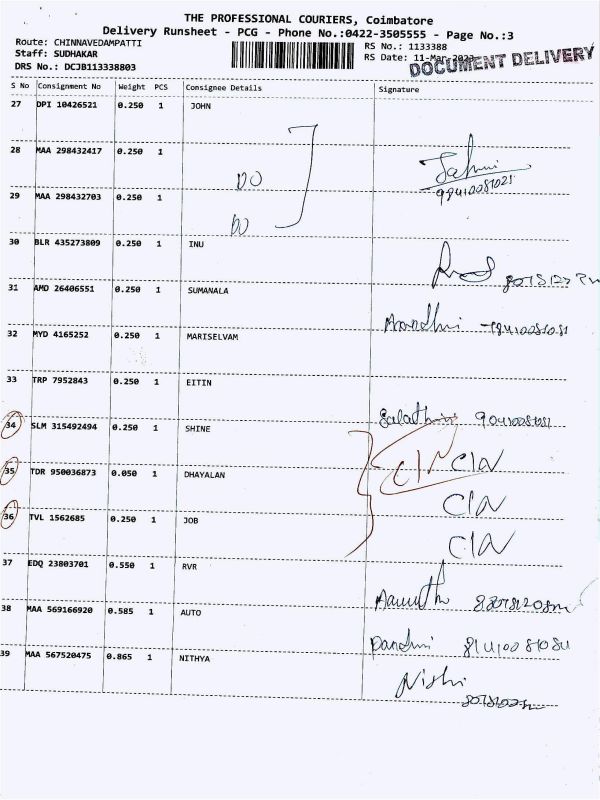 THE PROFESSIONAL COURIERS, Coimbatore
Delivery Runsheet - PCG - Phone No.:0422-3505555 - Page No.:3
Route: CHINNAVEDAMPATTI
Staff: SUDHAKAR
DRS No.: DCJB113338803
RS No.: 1133388
RS Date: 11-Mar-2023
DOCUMENT DELIVERY
S No Consignment No Weight PCS Consignee Details Signature
27 DPI 10426521 0.250 1 JOHN
28 MAA 298432417 0.250 1
DO
29 MAA 298432703 0.250 1
DO
30 BLR 435273809 0.250 1 INU
31 AMD 26406551 0.250 1 SUMANALA
32 MYD 4165252 0.250 1 MARISELVAM
33 TRP 7952843 0.250 1 EITIN
34 SLM 315492494 0.250 1 SHINE
CIN CIN
35 TDR 950036873 0.050 1 DHAYALAN
CIN
36 TVL 1562685 0.250 1 JOB
CIN
37 EDQ 23803701 0.550 1 RVR
38 MAA 569166920 0.585 1 AUTO
39 MAA 567520475 0.865 1 NITHYA
Nishi